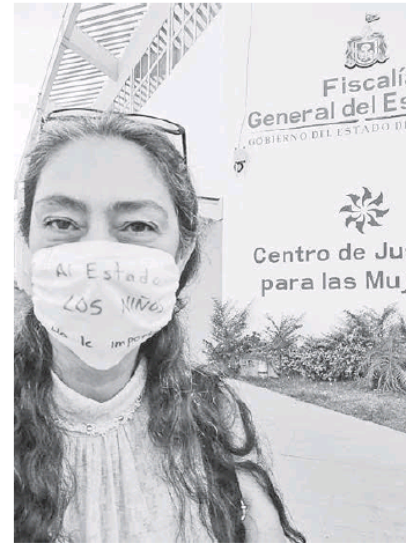 Fiscalí
General del Es
GOBIERNO DEL ESTADO D
Centro de Ju
para las Mu
Al Estado
LOS NIÑOS
no le impor